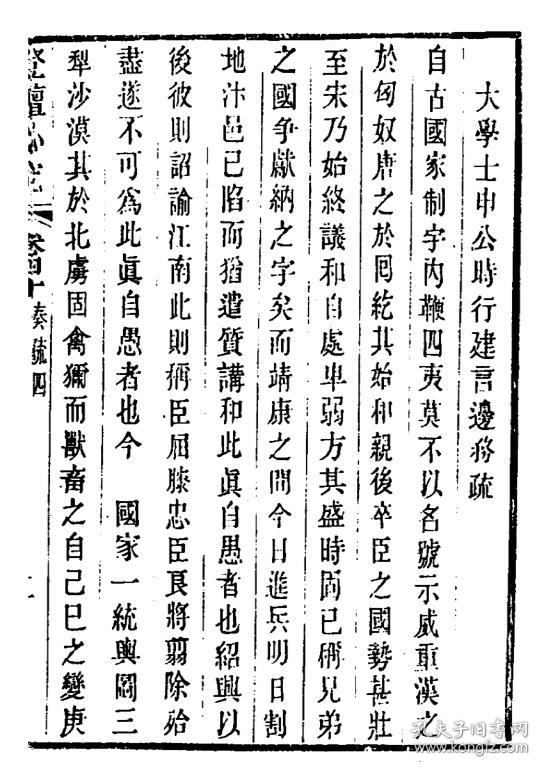 大學士申公時行建言邊務疏
自古國家制字內鞭四夷莫不以名號示威重漢之
於匈奴唐之於囘紇其始和親後卒臣之國勢甚壯
至宋乃始終議和自處卑弱方其盛時固已稱兄弟
之國爭獻納之字矣而靖康之間今日進兵明日割
地汴邑已陷而猶遣質講和此眞自愚者也紹興以
後彼則詔諭江南此則稱臣屈膝忠臣良將翦除殆
盡遂不可爲此眞自愚者也今 國家一統輿圖三
犁沙漠其於北虜固禽獮而獸畜之自己巳之變庚
登壇必究 卷四十 奏疏四
孔夫子旧书网
www.kongfz.com